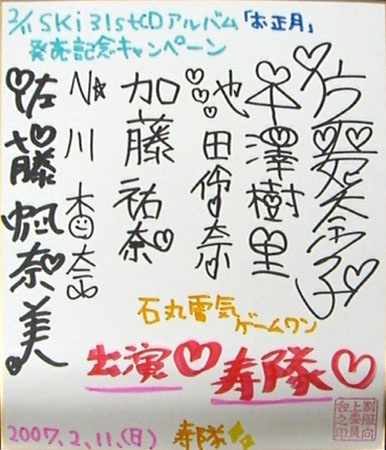 2/11 SKi 31stCDアルバム「お正月」
発売記念キャンペーン
澤樹里
池田伶奈
加藤祐奈
川
佐藤帆奈美
石丸電気
ゲームワン
出演♡ 寿隊♡
制服向上委員会之印
2007.2.11.(日) 寿隊